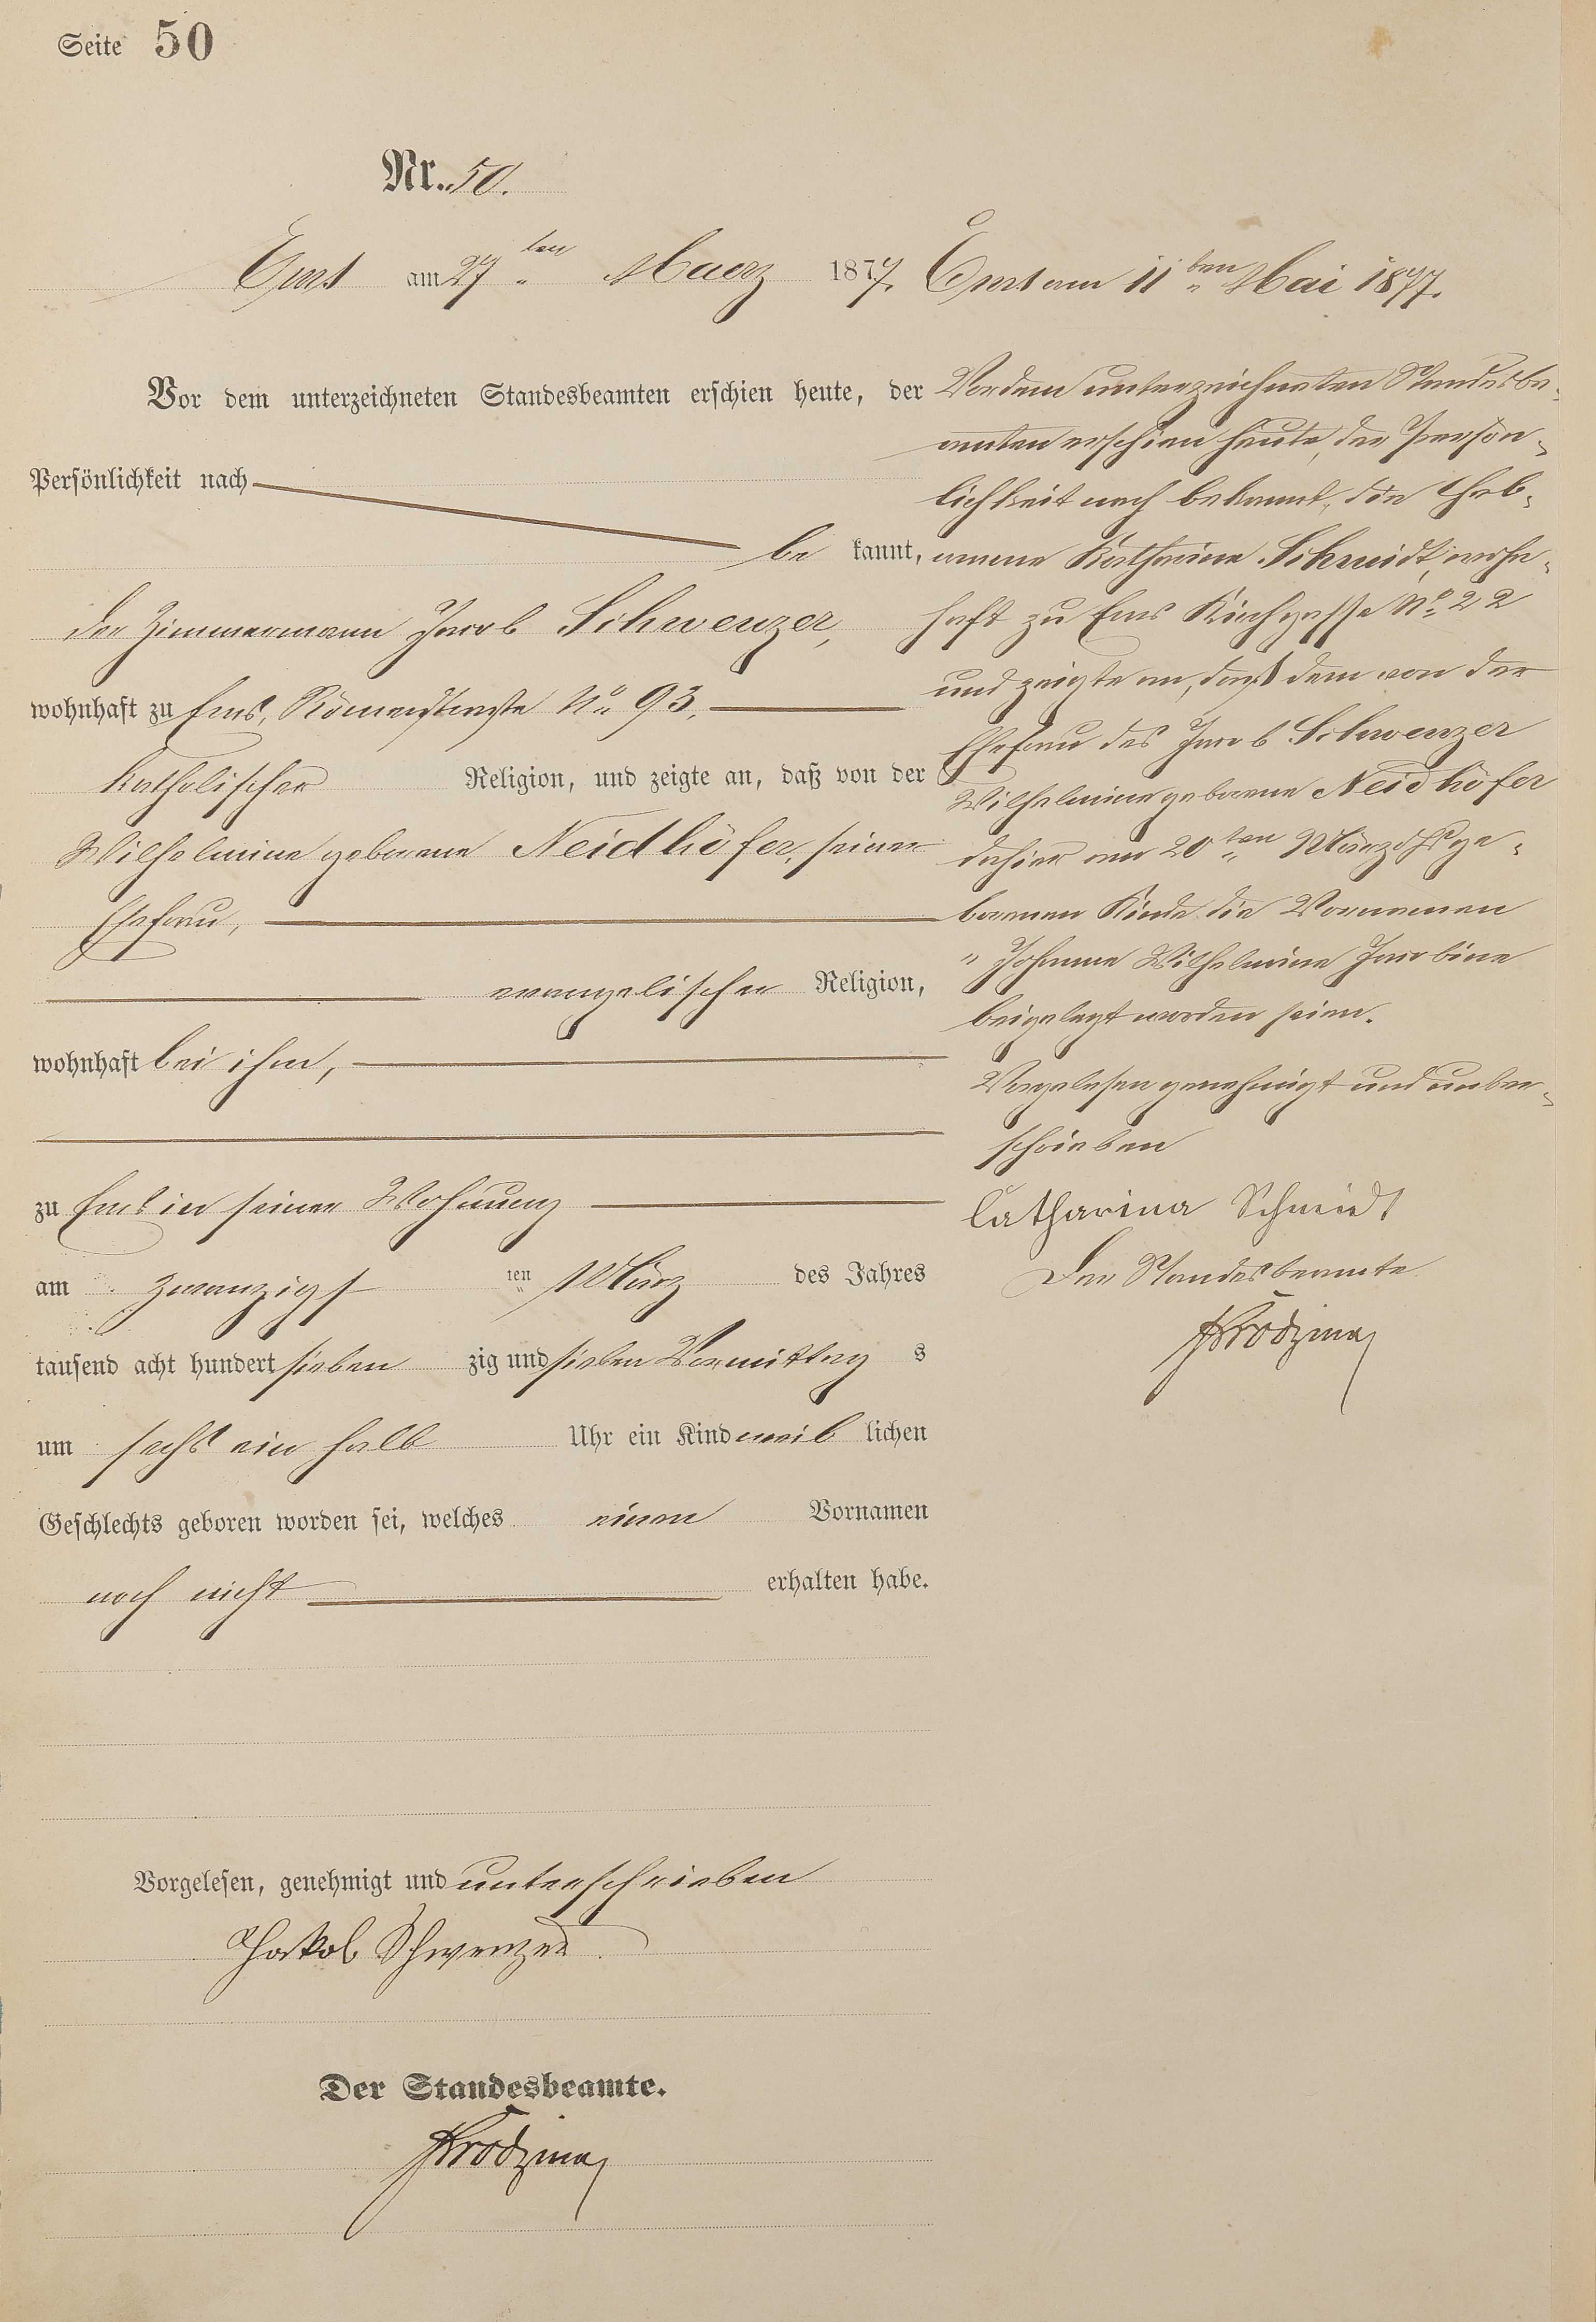 Seite 50
Nr. 50.
Ems am 27ten Maerz 1877.
Vor dem unterzeichneten Standesbeamten erschien heute, der
Persönlichkeit nach
be kannt,
der Zimmermann Jacob Schwenzer,
wohnhaft zu Ems, Römerstraße No 93,
katholischer Religion, und zeigte an, daß von der
Wilhelmine geborene Neidhöfer, seiner
Ehefrau,
evangelischer Religion,
wohnhaft bei ihm,
zu Ems in seiner Wohnung
am zwanzigsten März des Jahres
tausend acht hundert sieben zig und sieben Vormittag s
um sechs ein halb Uhr ein Kind weib lichen
Geschlechts geboren worden sei, welches einen Vornamen
noch nicht erhalten habe.
Vorgelesen, genehmigt und unterschrieben
Jakob Schwenzer.
Der Standesbeamte.
Ems am 11ten Mai 1877.
Vor dem unterzeichneten Standesbe-
amten erschien heute, der Persön-
lichkeit nach bekannt, die Heb-
amme Katharina Schmidt, wohn-
haft zu Ems Kirchgasse No 22
und zeigte an, daß dem von der
Ehefrau des Jacob Schwenzer
Wilhelmine geborene Neidhöfer
dahier am 20ten März ds Js ge-
borenen Kinde die Vornamen
" Johanna Wilhelmine Jacobine
beigelegt worden seien.
Vorgelesen genehmigt und unter-
schrieben
Catharina Schmidt
Der Standesbeamte